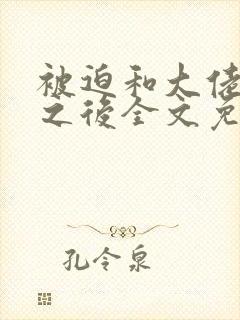 被迫和大佬
之後全文免
孔令泉